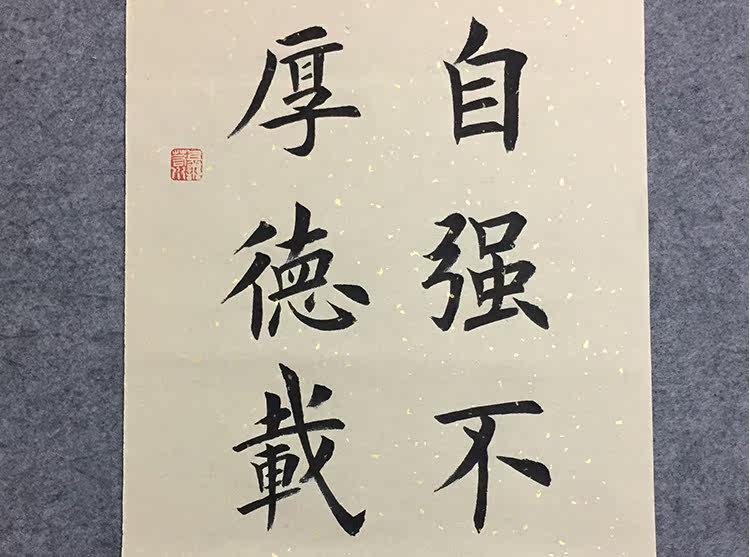 自强不
厚德載